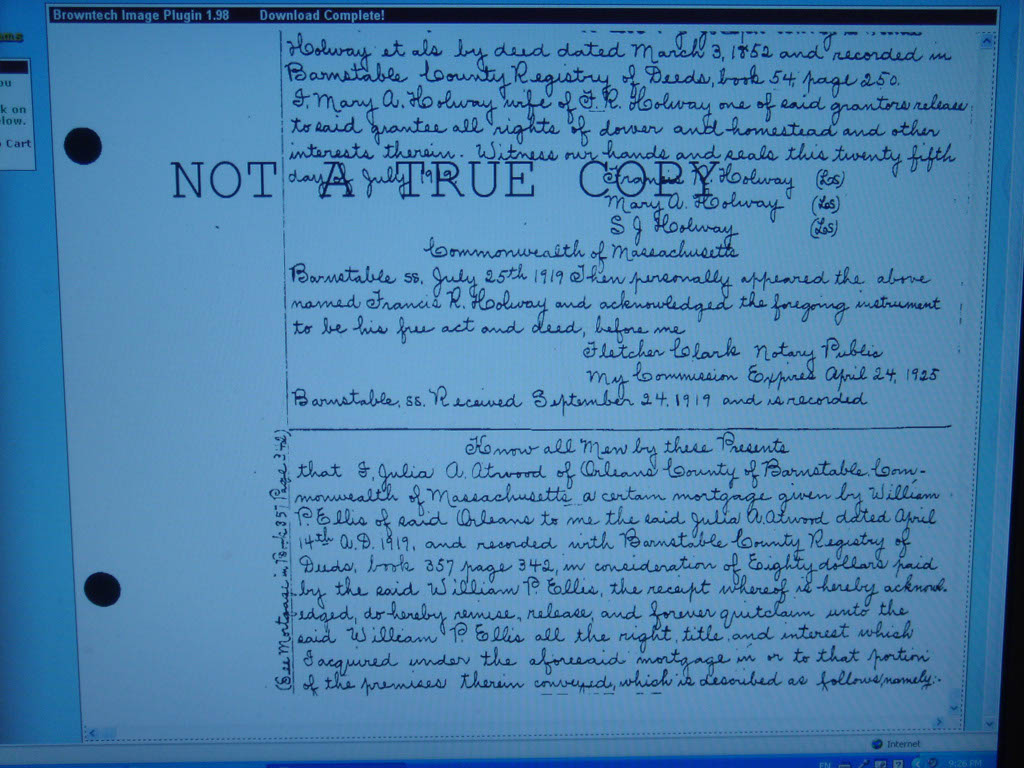 Browntech Image Plugin 1.98 Download Complete!
Holway et als by deed dated March 3, 1852 and recorded in
Barnstable County Registry of Deeds, book 54, page 250.
I, Mary A. Holway wife of F. R. Holway one of said grantors release
to said grantee all rights of dower and homestead and other
interests therein. Witness our hands and seals this twenty fifth
day of July 1919
NOT A TRUE COPY
Francis R. Holway (LS)
Mary A. Holway (LS)
S J Holway (LS)
Commonwealth of Massachusetts
Barnstable ss. July 25th 1919 Then personally appeared the above
named Francis R. Holway and acknowledged the foregoing instrument
to be his free act and deed, before me
Fletcher Clark Notary Public
My Commission Expires April 24, 1925
Barnstable, ss. Received September 24. 1919 and is recorded
Know all Men by these Presents
that I, Julia A. Atwood of Orleans County of Barnstable Com-
monwealth of Massachusetts a certain mortgage given by William
P. Ellis of said Orleans to me the said Julia A. Atwood dated April
14th A.D. 1919, and recorded with Barnstable County Registry of
Deeds, book 357 page 342, in consideration of Eighty dollars paid
by the said William P. Ellis, the receipt whereof is hereby acknowl-
edged, do hereby remise, release, and forever quitclaim unto the
said William P. Ellis all the right, title, and interest which
I acquired under the aforesaid mortgage in or to that portion
of the premises therein conveyed, which is described as follows, namely:-
(See Mortgage in Book 357 Page 342)
ou
k on
low.
Cart
Internet
EN
9:26 PM